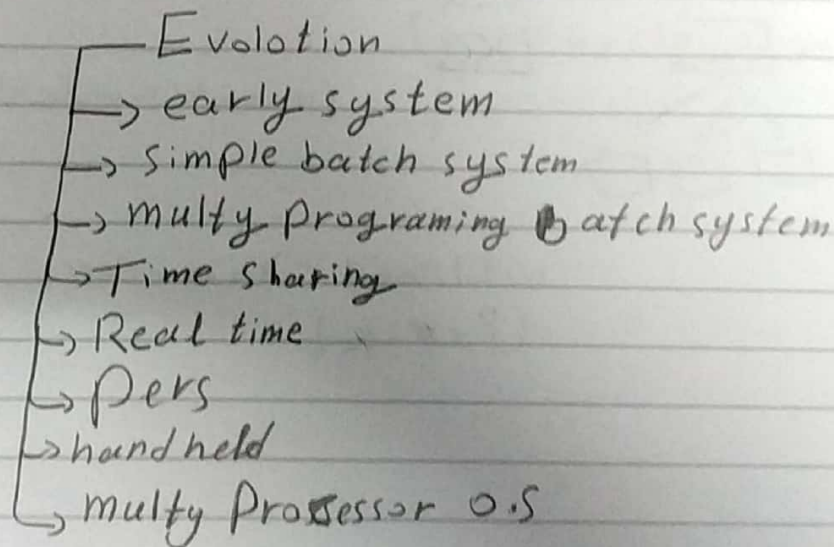 Evolotion
early system
simple batch system
multy programing batch system
Time sharing
Real time
Pers
hand held
multy Processor O.S